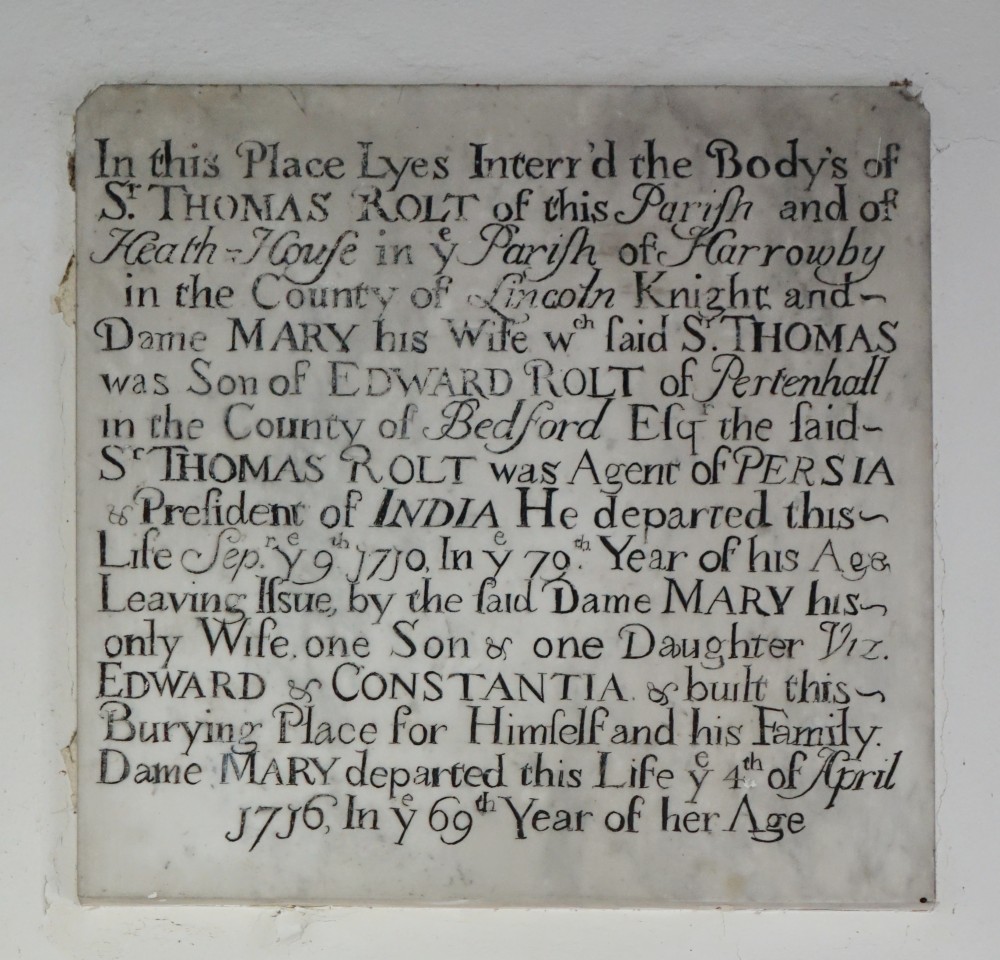 In this Place Lyes Interr'd the Body's of
Sr. THOMAS ROLT of this Pariſh and of
Heath-Houſe in ye Pariſh of Harrowby
in the County of Lincoln Knight and~
Dame MARY his Wife wch ſaid Sr. THOMAS
was Son of EDWARD ROLT of Pertenhall
in the County of Bedford Eſqr the ſaid~
Sr THOMAS ROLT was Agent of PERSIA
& Preſident of INDIA He departed this~
Life Sepr. ye 9th 1710, In ye 79th. Year of his Age
Leaving Iſsue, by the ſaid Dame MARY his~
only Wife, one Son & one Daughter Viz.
EDWARD & CONSTANTIA. & built this~
Burying Place for Himſelf and his Family.
Dame MARY departed this Life ye 4th of April
1716, In ye 69th Year of her Age